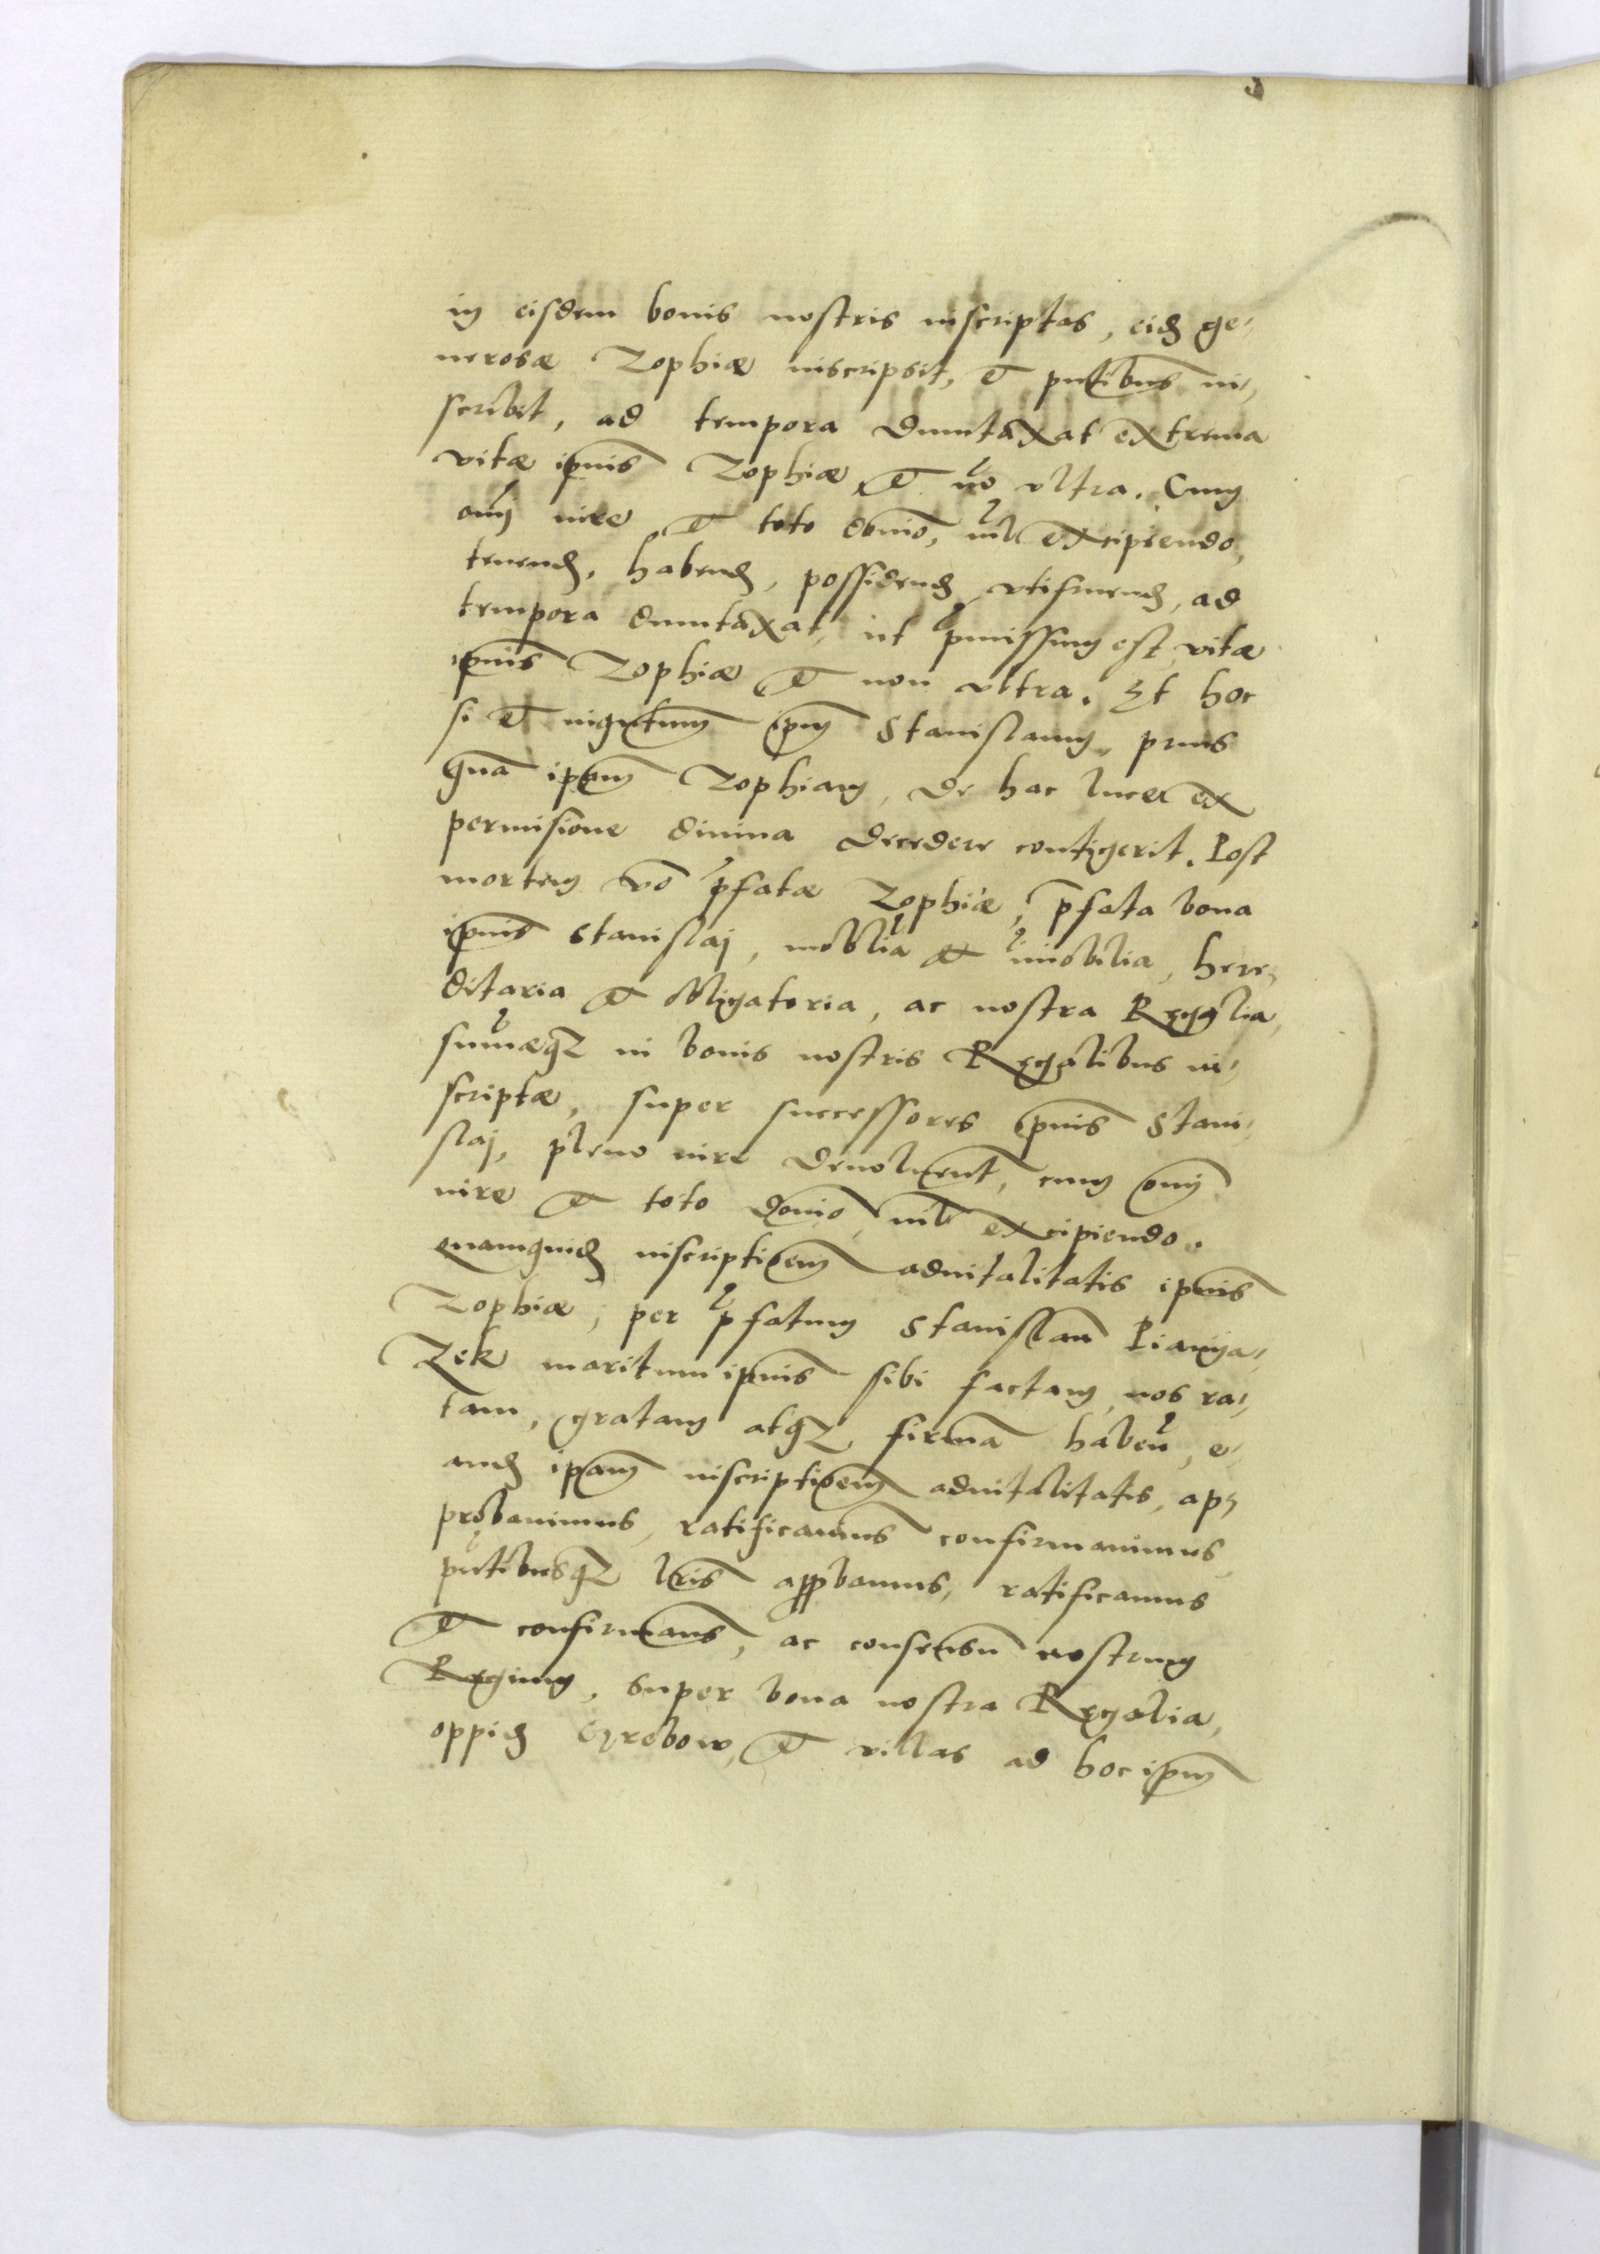 in eisdem bonis nostris inscriptas, eid ge-
nerosæ Zophiæ inscripsit, et pntibus in-
scribit, ad tempora duntaxat extrema
vitæ ipius Zophiæ et no vltra. Cum
omj iure et toto domio, nil excipiendo,
tenend, habend, possidend vtifruend, ad
tempora duntaxat, ut pmissum est vitæ
ipius Zophiæ et non vltra. Et hoc
si et ipm Stanislaum, prius
qua ipam Zophiam, de hac luce ex
permisione diuina decedere contigerit. Post
mortem vo pfatæ Zophiæ, pfata bona
ipius Stanislaj, mobilia et imobilia, here-
ditaria et obligatoria, ac nostra Regalia,
sumæq in bonis nostris Regalibus in-
scriptæ, super successores ipius Stani-
slaj, pleno iure deuoluent, cum omj
iure et toto domio, nil excipiendo.
quamquid inscriptioem aduitalitatis ipius
Zophiæ, per pfatum Stanislau Pianya-
Zek maritum ipius sibi factam, nos ra-
tam, gratam atq firma haben, e-
amd ipam inscriptioem aduitalitatis, ap-
probauimus, ratificauimus confirmauimus
pntibusq lris appbamus, ratificamus
et confirmams, ac consensu nostrum
Regium, super bona nostra Regalia,
oppid et villas ad hoc ipm